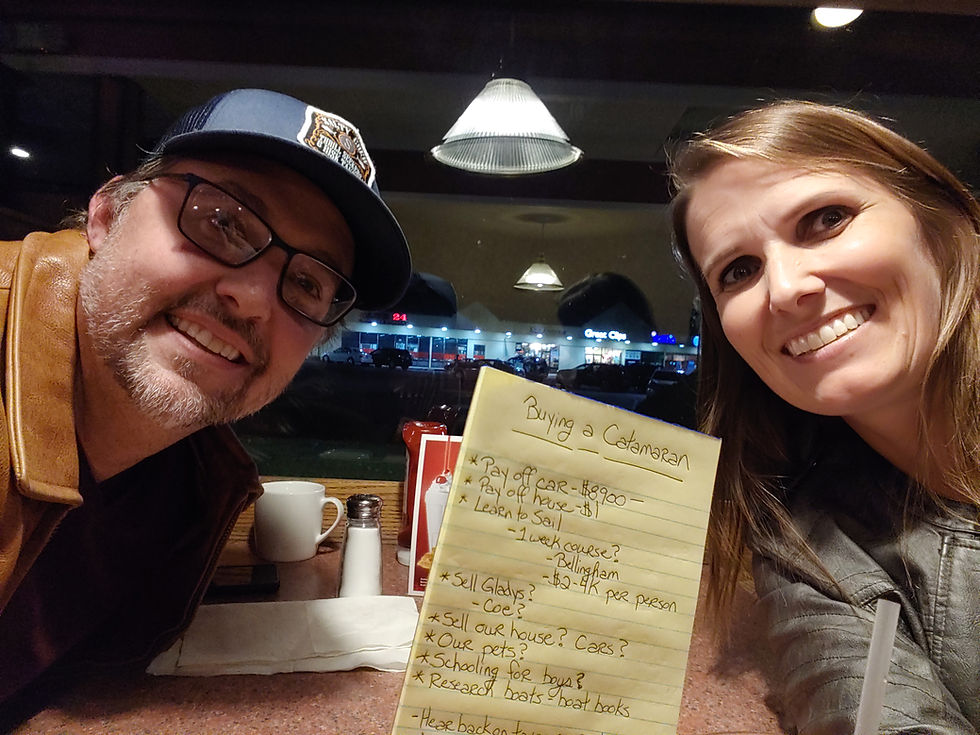 24
Great Clips
Buying a Catamaran
* Pay off car - $8900 -
* Pay off house - $1
* Learn to Sail
- 1 week course?
- Bellingham
- $2-4K per person
* Sell Gladys?
- Coe?
* Sell our house? Cars?
* Our pets?
* Schooling for boys?
* Research boats - boat books
- Hear back on